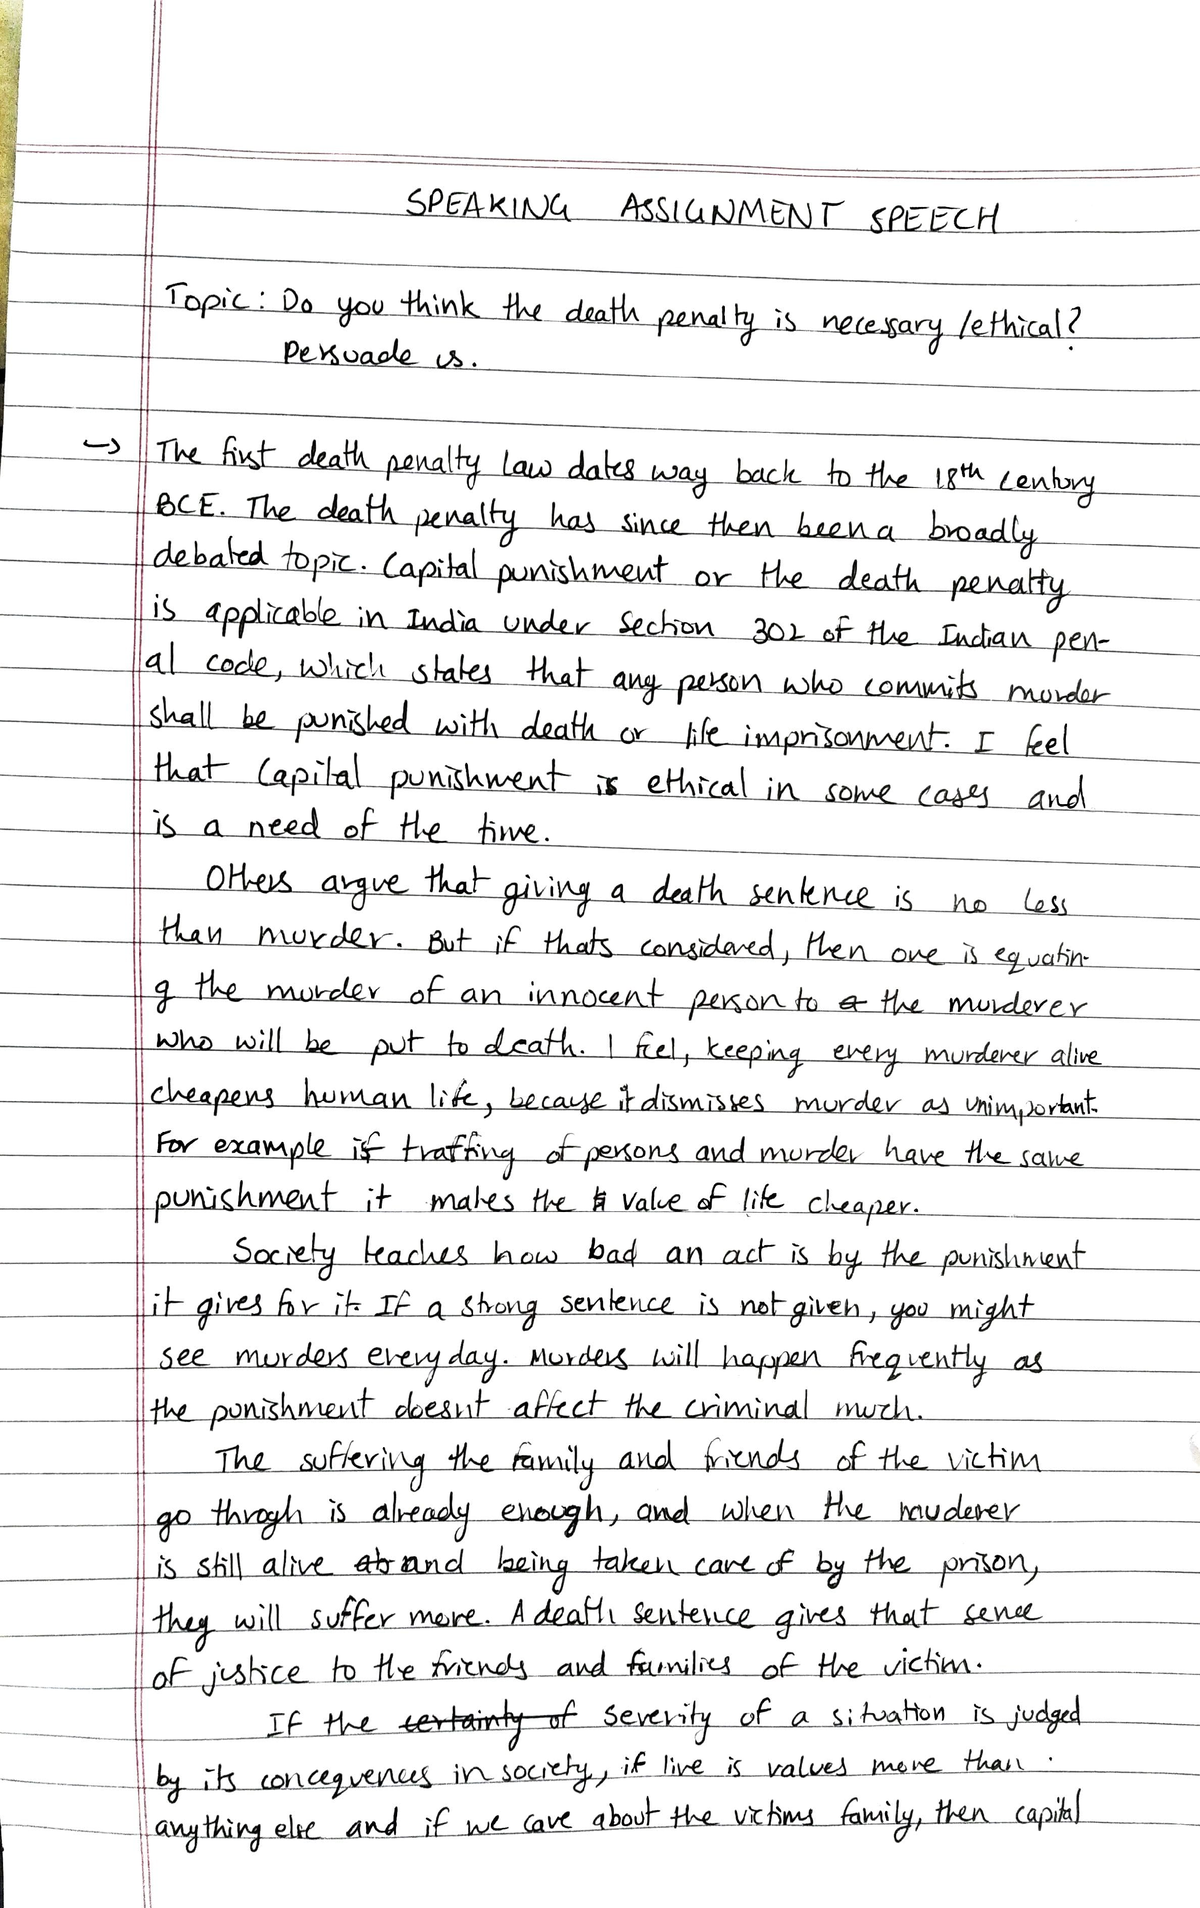 SPEAKING ASSIGNMENT SPEECH
Topic: Do you think the death penalty is necessary /ethical?
Persuade us.
→ The first death penalty law dates way back to the 18th century
BCE. The death penalty has since then been a broadly
debated topic. Capital punishment or the death penalty
is applicable in India under Section 302 of the Indian pen-
al code, which states that any person who commits murder
shall be punished with death or life imprisonment. I feel
that Capital punishment is ethical in some cases and
is a need of the time.
Others argue that giving a death sentence is no less
than murder. But if thats considered, then one is equatin-
g the murder of an innocent person to a the murderer
who will be put to death. I feel, keeping every murderer alive
cheapens human life, because it dismisses murder as unimportant.
For example if traffing of persons and murder have the same
punishment it makes the value of life cheaper.
Society teaches how bad an act is by the punishment
it gives for it. If a strong sentence is not given, you might
see murders every day. Murders will happen frequently as
the punishment doesnt affect the criminal much.
The suffering the family and friends of the victim
go throgh is already enough, and when the muderer
is still alive and being taken care of by the prison,
they will suffer more. A death sentence gives that sence
of justice to the friends and families of the victim.
If the certainty of severity of a situation is judged
by its concequences in society, if live is values more than
anything else and if we care about the victims family, then capital